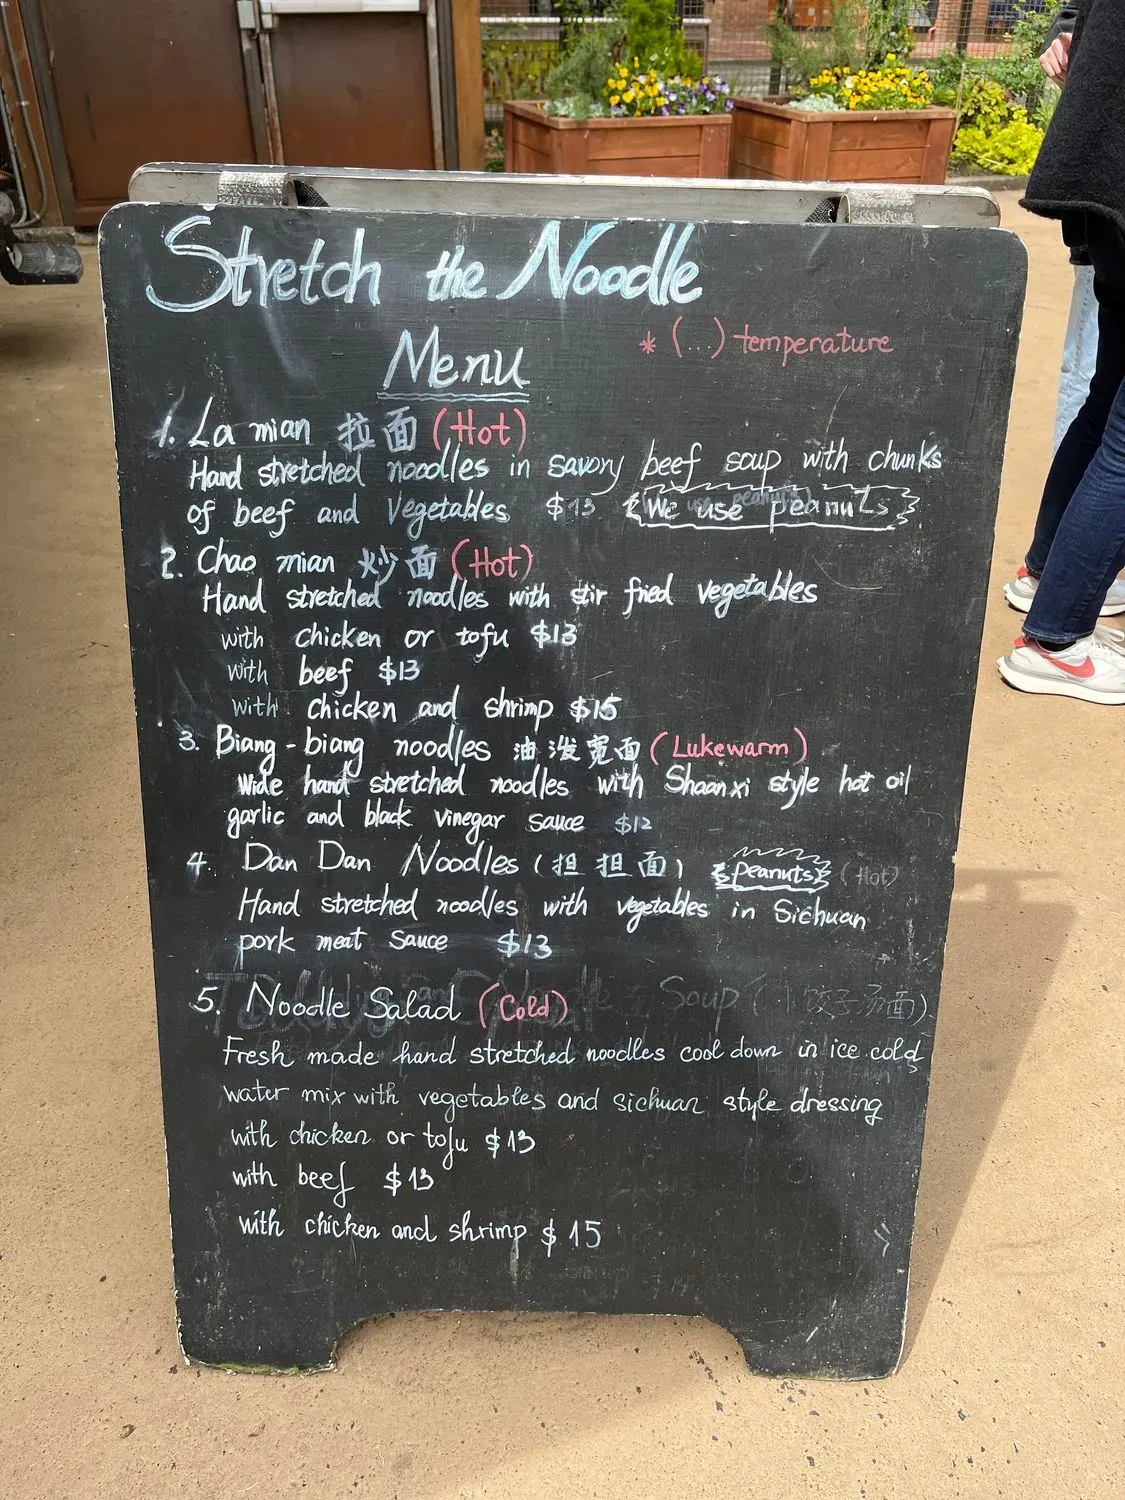 Stretch the Noodle
Menu
* (...) temperature
1. La mian 拉面 (Hot)
Hand stretched noodles in savory beef soup with chunks
of beef and Vegetables $13 We use peanuts
2. Chao mian 炒面 (Hot)
Hand stretched noodles with stir fried vegetables
with chicken or tofu $13
with beef $13
with chicken and shrimp $15
3. Biang-biang noodles 油泼宽面 (Lukewarm)
Wide hand stretched noodles with Shaanxi style hot oil
garlic and black vinegar sauce $12
4. Dan Dan Noodles (担担面) peanuts (Hot)
Hand stretched noodles with vegetables in Sichuan
pork meat sauce $13
5. Noodle Salad (Cold)
Soup
Fresh made hand stretched noodles cool down in ice cold
water mix with vegetables and sichuan style dressing
with chicken or tofu $13
with beef $13
with chicken and shrimp $15